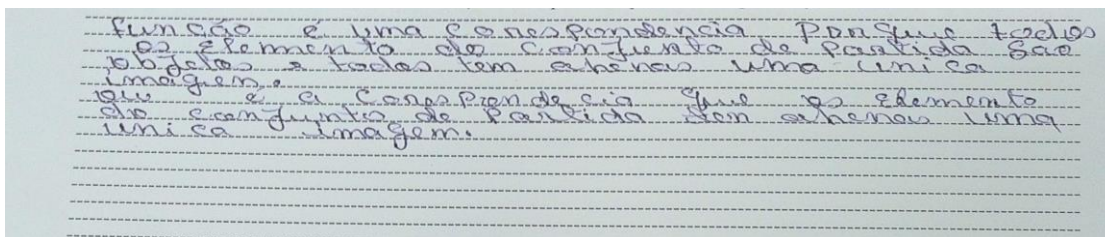 função é uma corespondencia porque todos
os elemento do conjunto de partida sao
objetos e todos tem apenas uma unica
imagem.
ou é a corespondecia que os elemento
do conjunto de partida tem apenas uma
unica imagem.